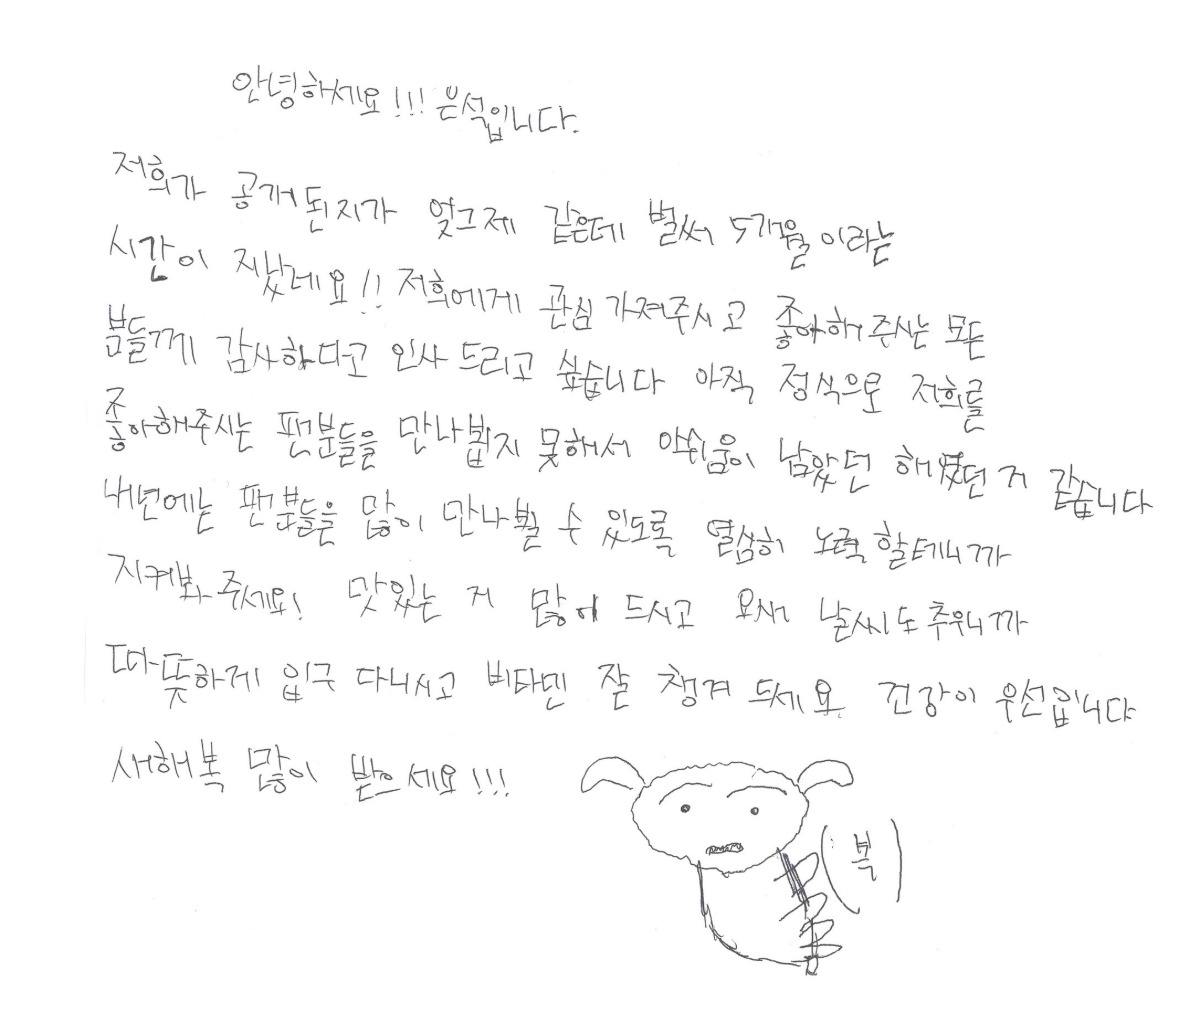 안녕하세요!!! 은석입니다.
저희가 공개된지가 엊그제 같은데 벌써 5개월이라는
시간이 지났네요!! 저희에게 관심 가져주시고 좋아해주시는 모든
분들께 감사하다고 인사 드리고 싶습니다 아직 정식으로 저희를
좋아해주시는 팬분들을 만나뵙지 못해서 아쉬움이 남았던 해였던 거 같습니다
내년에는 팬분들을 많이 만나뵐 수 있도록 열심히 노력 할테니까
지켜봐 주세요! 맛있는 거 많이 드시고 요새 날씨도 추우니까
따뜻하게 입구 다니시고 비타민 잘 챙겨 드세요 건강이 우선입니다
새해복 많이 받으세요!!!
(복)